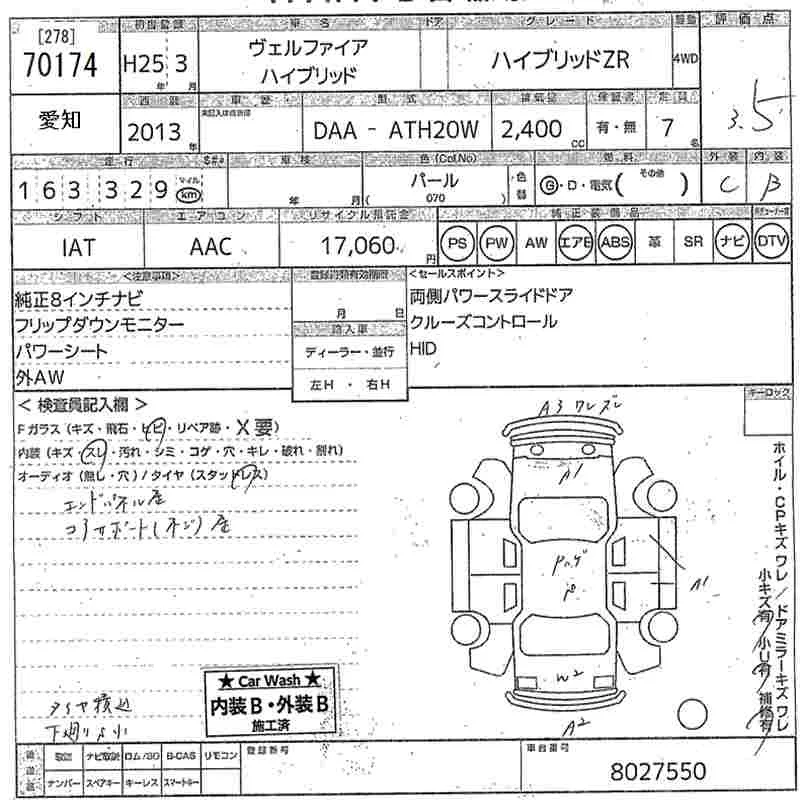 [278]
70174
初度登録
H25 3
年 月
車名
ヴェルファイア
ハイブリッド
ドア
グレード
ハイブリッドZR
4WD
評価点
3.5
愛知
西暦
2013
年
車歴
型式
DAA - ATH20W
排気量
2,400
cc
保証書
有・無
定員
7
名
走行
163329
マイル
km
車検
年 月
色(Col,No)
パール
( 070 )
色替
燃料
G・D・電気( その他 )
外装
C
内装
B
シフト
IAT
エアコン
AAC
リサイクル預託金
17,060
円
純正装備品
PS PW AW エアB ABS 革 SR ナビ DTV
<注意事項>
純正8インチナビ
フリップダウンモニター
パワーシート
外AW
登録書類有効期限
月 日
輸入車
ディーラー・並行
左H ・ 右H
<セールスポイント>
両側パワースライドドア
クルーズコントロール
HID
< 検査員記入欄 >
Fガラス(キズ・飛石・ヒビ・リペア跡・X要)
内装(キズ・スレ・汚れ・シミ・コゲ・穴・キレ・破れ・割れ)
オーディオ(無し・穴)/タイヤ(スタッドレス)
エンドパネル歪
コアサポート(ネジ)歪
タイヤ積込
下廻りサ小
★ Car Wash ★
内装B・外装B
施工済
A3 ワレ ズレ
A1
A1
W2
A2
キーロック
ホイル・CPキズ ワレ/ドアミラーキズ ワレ
小キズ有/小U有/補修有
取説 ナビ取説 ロム/SD B-CAS リモコン
ナンバー スペアキー キーレス スマートキー
登録番号
車台番号
8027550